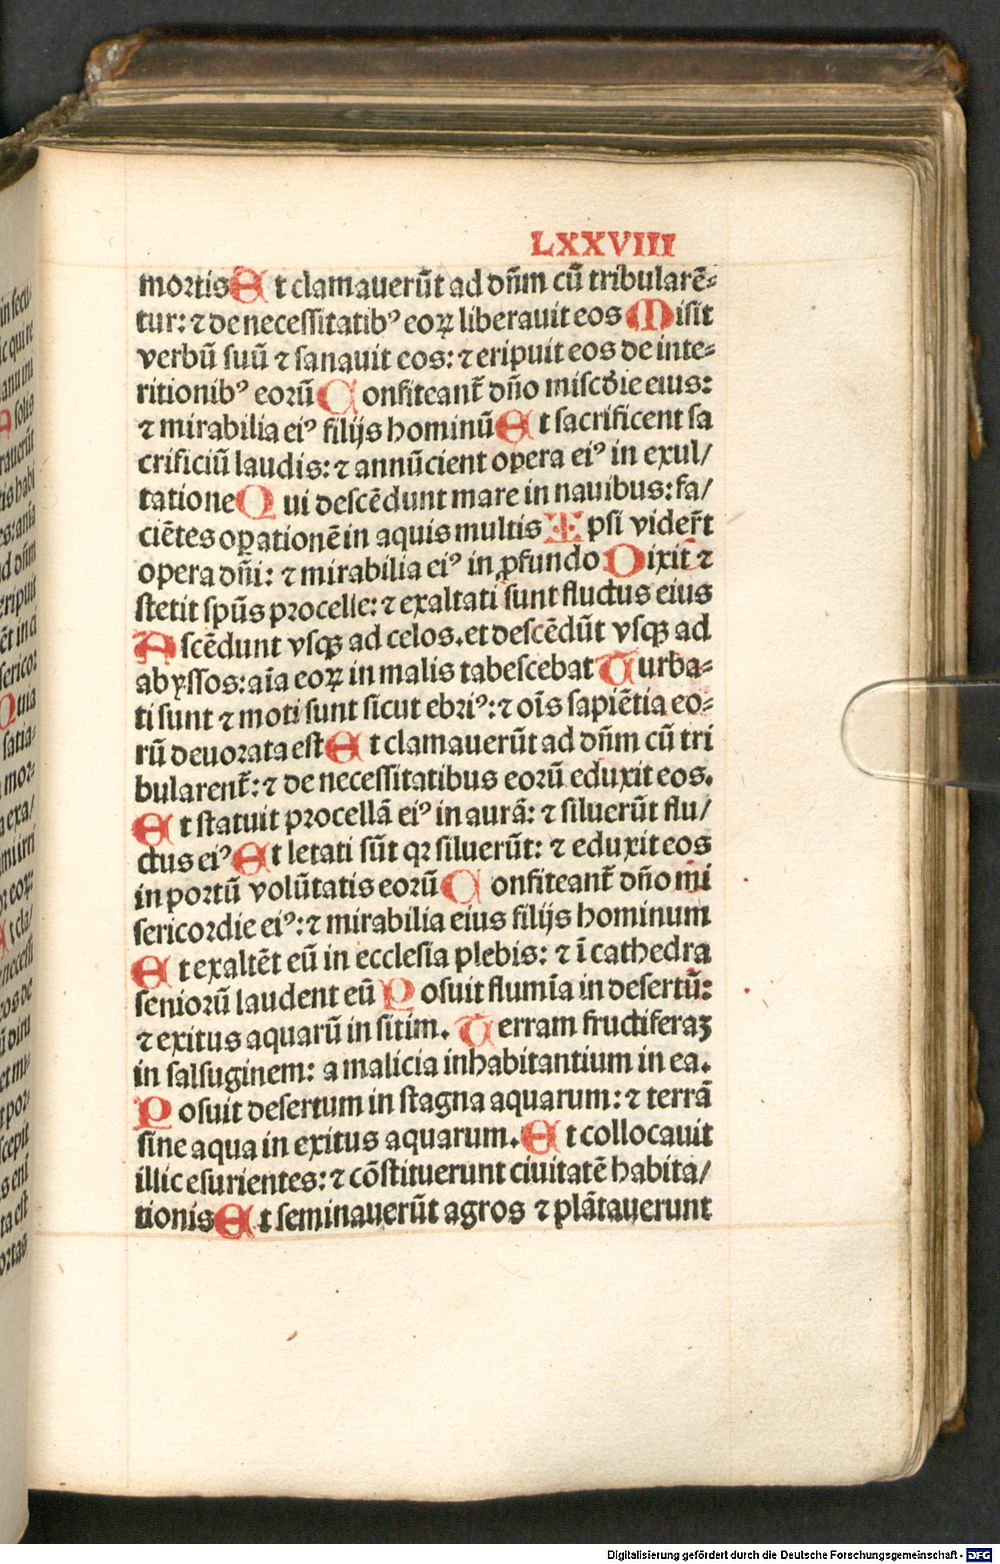 LXXVIII
mortis Et clamauerūt ad dn̄m cū tribularē⸗
tur: ⁊ de necessitatibꝰ eoꝝ liberauit eos Misit
verbū suū ⁊ sanauit eos: ⁊ eripuit eos de inte⸗
ritionibꝰ eoꝛū Confiteant᷑ dn̄o misc̄die eius:
⁊ mirabilia eiꝰ filijs hominū Et sacrificent sa
crificiū laudis: ⁊ annūcient opera eiꝰ in exul/
tatione Qui descēdunt mare in nauibus: fa/
ciētes oꝑationē in aquis multis Ipsi vider̄t
opera dn̄i: ⁊ mirabilia eiꝰ in ꝓfundo Dixit ⁊
stetit spūs procelle: ⁊ exaltati sunt fluctus eius
Ascēdunt vsqꝫ ad celos. et descēdūt vsqꝫ ad
abyssos: aīa eoꝝ in malis tabescebat Turba⸗
ti sunt ⁊ moti sunt sicut ebꝛiꝰ: ⁊ oīs sapiētia eo⸗
rū deuoꝛata est Et clamauerūt ad dn̄m cū tri
bularent᷑: ⁊ de necessitatibus eoꝛū eduxit eos.
Et statuit pꝛocellā eiꝰ in aurā: ⁊ siluerūt flu/
ctus eiꝰ Et letati sūt qꝛ siluerūt: ⁊ eduxit eos
in poꝛtū volūtatis eoꝛū Confiteant᷑ dn̄o mi
sericoꝛdie eiꝰ: ⁊ mirabilia eius filijs hominum
Et exaltēt eū in ecclesia plebis: ⁊ ī cathedra
senioꝛū laudent eū Posuit flumīa in desertū:
⁊ exitus aquarū in sitim. Terram fructiferaꝫ
in salsuginem: a malicia inhabitantium in ea.
Posuit desertum in stagna aquarum: ⁊ terrā
sine aqua in exitus aquarum. Et collocauit
illic esurientes: ⁊ cōstituerunt ciuitatē habita/
tionis Et seminauerūt agros ⁊ plātauerunt
Digitalisierung gefördert durch die Deutsche Forschungsgemeinschaft - DFG